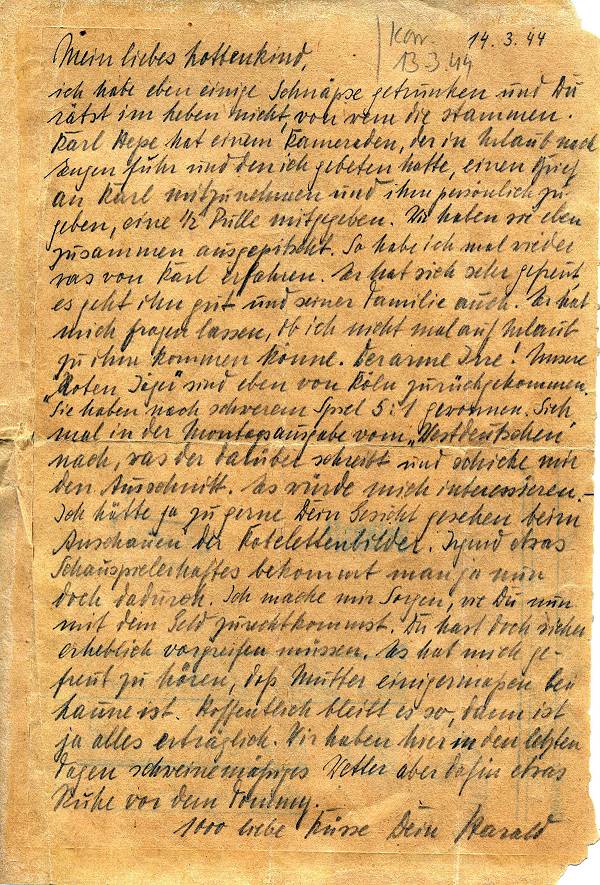 14.3.44
Korr.
13.3.44
Mein liebes Lottenkind,
ich habe eben einige Schnäpse getrunken und Du
rätst im Leben nicht, von wem die stammen.
Karl Hepe hat einem Kameraden, der in Urlaub nach
fuhr und den ich gebeten hatte, einen Brief
an Karl mitzunehmen und ihm persönlich zu
geben, eine 1/2 Pulle mitgegeben. Wir haben sie eben
zusammen ausgepitscht. So habe ich mal wieder
was von Karl erfahren. Er hat sich sehr gefreut,
es geht ihm gut und seiner Familie auch. Er hat
mich fragen lassen, ob ich nicht mal auf Urlaub
zu ihm kommen könne. Der arme Irre! Unsere
„Roten Jäger" sind eben von Köln zurückgekommen.
Sie haben nach schwerem Spiel 5:1 gewonnen. Sieh
mal in der Montagsausgabe vom „Westdeutschen"
nach, was der darüber schreibt und schicke mir
den Ausschnitt. Es würde mich interessieren.-
Ich hätte ja zu gerne Dein Gesicht gesehen beim
Anschauen der Kotelettenbilder. Irgend etwas
Schauspielerhaftes bekommt man ja nun
doch dadurch. Ich mache mir Sorgen, wie Du nun
mit dem Geld zurechtkommst. Du hast doch sicher
erheblich vorgreifen müssen. Es hat mich ge-
freut zu hören, daß Mutter einigermaßen bei
Laune ist. Hoffentlich bleibt es so, dann ist
ja alles erträglich. Wir haben hier in den letzten
Tagen schweinemäßiges Wetter aber dafür etwas
Ruhe vor dem Tommy.
1000 liebe Küsse Dein Harald